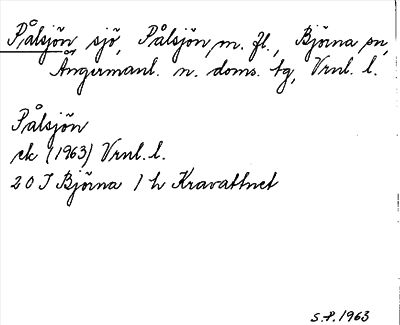 Pålsjön, sjö, Pålsjön m. fl., Björna sn,
Ångermanl. n. doms. tg, Vrnl. l.
Pålsjön
ek (1963) Vrnl. l.
20 J Björna 1 h Kravattnet
S.P. 1963